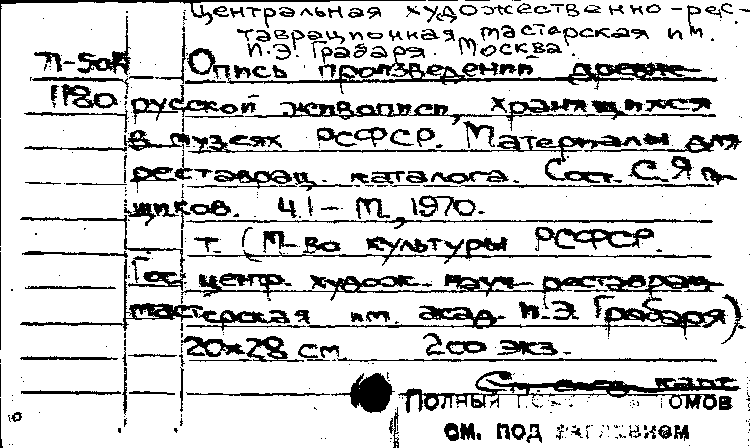 Центральная художественно-рес-
таврационная мастерская им.
И.Э. Грабаря. Москва.
Опись произведений древне-
1180 русской живописи, хранящихся
в музеях РСФСР. Материалы для
реставрац. каталога. Сост. С. Ям-
щиков. Ч 1 – М., 1970.
т. (М-во культуры РСФСР.
Гос. центр. худож. науч-реставрац
мастерская им. акад. И.Э. Грабаря).
20×28 см. 200 экз.
См. след. карт
Полный томов
см. под заглавием